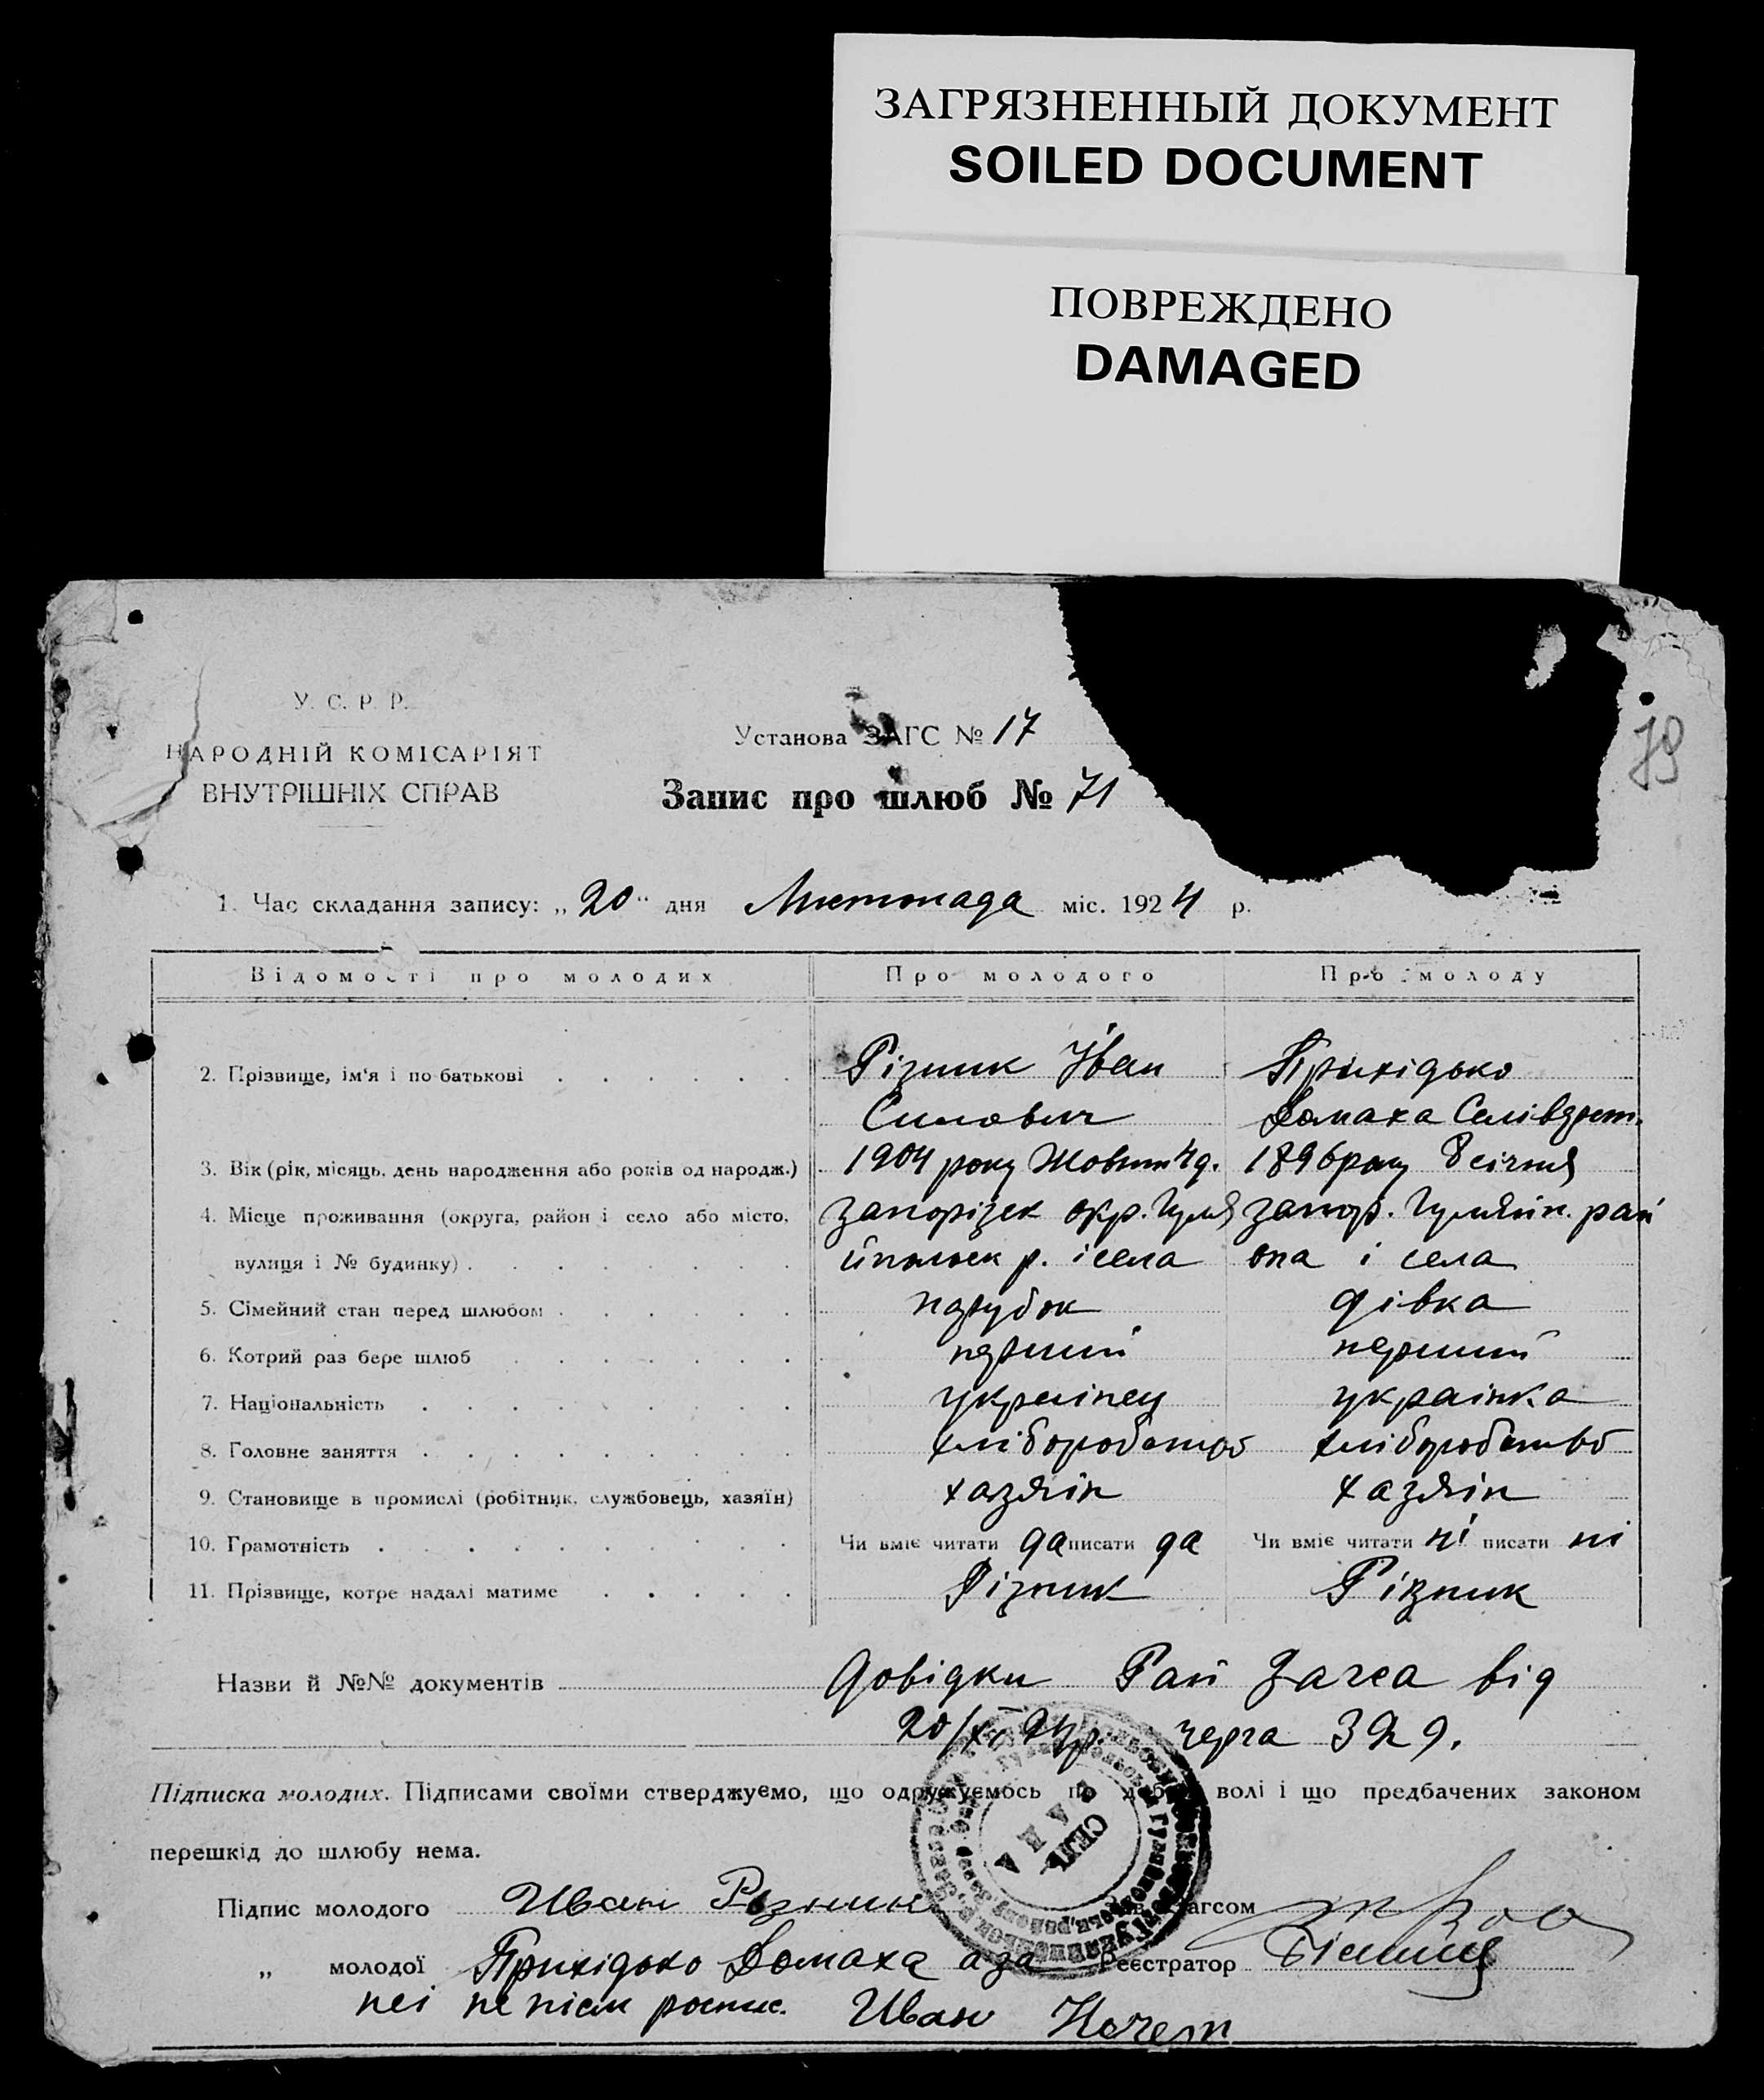 ЗАГРЯЗНЕННЫЙ ДОКУМЕНТ
SOILED DOCUMENT
ПОВРЕЖДЕНО
DAMAGED
79
У. С. Р. Р.
НАРОДНІЙ КОМІСАРІЯТ
ВНУТРІШНІХ СПРАВ
Установа ЗАГС № 17
Запис про шлюб № 71
1. Час складання запису: „20“ дня Листопада міс. 1924 р.
Відомості про молодих Про молодого Про молоду
2. Прізвище, ім'я і по батькові Різник Іван Прихідько
Домаха Селівэст.
3. Вік (рік, місяць, день народження або років од народж.) 1904 року Жовт 4д. 1896 року 8 січня
4. Місце проживання (округа, район і село або місто, запорізск окр. Гуля запор. Гуляйп. рай
вулиця і № будинку) йпольск р. і села она і села
5. Сімейний стан перед шлюбом парубок дівка
6. Котрий раз бере шлюб перший перший
7. Національність українец українка
8. Головне заняття хліборобство хліборобство
9. Становище в промислі (робітник, службовець, хазяїн) хазяін хазяін
10. Грамотність Чи вміє читати да писати да Чи вміє читати ні писати ні
11. Прізвище, котре надалі матиме Різник Різник
Назви й №№ документів довідки Рай Загса від
20/XI 24р. черга 329.
Підписка молодих. Підписами своїми стверджуємо, що одружуємось по добрій волі і що предбачених законом
перешкід до шлюбу нема.
СЕЛЬ
РАДА
Підпис молодого Иван Різник Зав. Загсом
„ молодої Прихідько Домаха а за Реєстратор
неі неписм роспис. Иван Кочет